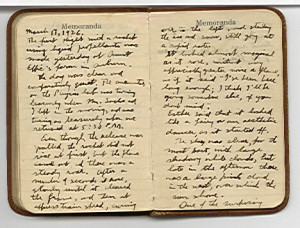 Memoranda
March 17, 1926.
The first flight with a rocket
using liquid propellants was
made yesterday at Aunt
Effie's farm in Auburn.
The day was clear and
comparatively quiet. The
on the Physics lab was turning
leisurely when Mr. Sachs and
I left in the morning, and was
turning as leisurely when we
returned at 5:30 P.M.
Even though the release was
pulled, the rocket did not
rise at first, but the flame
came out, and there was a
steady roar. After a
number of seconds it rose,
slowly until it cleared
the frame, and then at
express train speed, curving
Memoranda
over to the left, and striking
the ice and snow, still going at
a rapid rate.
It looked almost magical
as it rose, without any
appreciably greater noise or flame,
as if it said "I've been here
long enough; I think I'll be
going somewhere else, if you
don't mind."
Esther said that it looked
like a fairy or an aesthetic
dancer, as it started off.
The sky was clear, for the
most part, with large
shadowy white clouds, but
late in the afternoon there
was a large pink cloud
in the west, over which the
sun shone.
One of the surprising